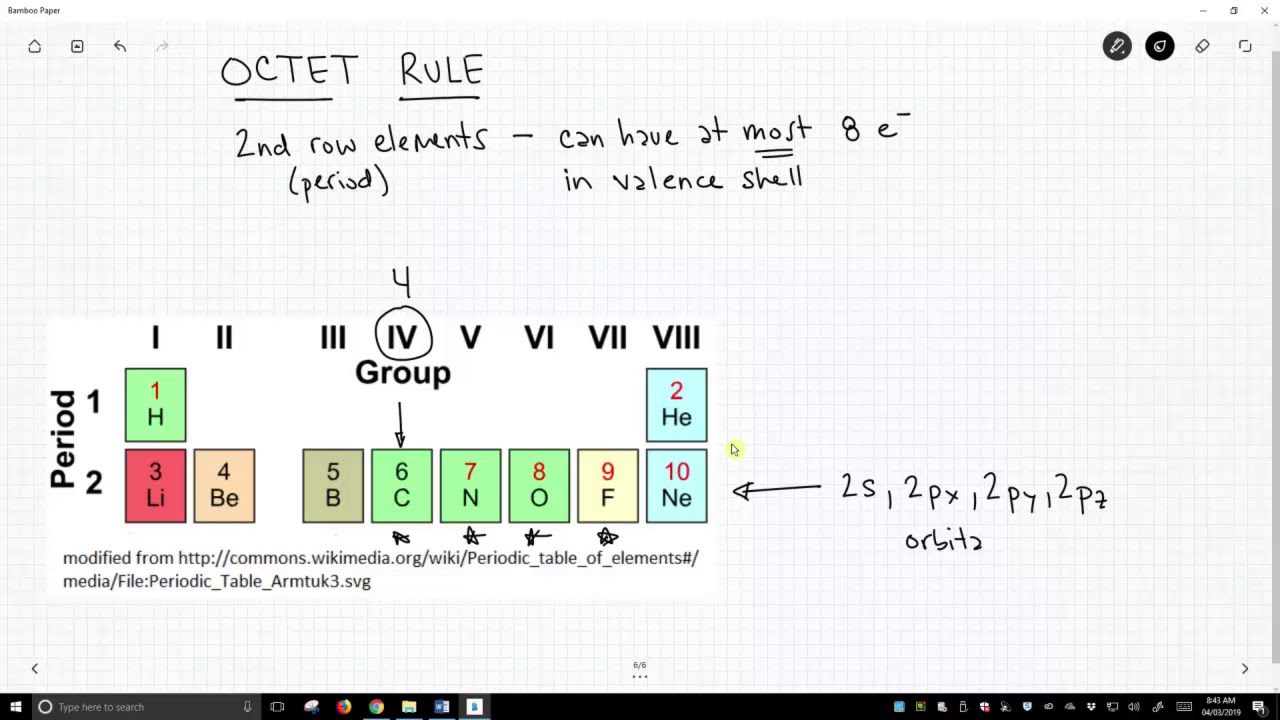 Bamboo Paper
OCTET RULE
2nd row elements – can have at most 8 e⁻
(period) in valence shell
4
I II III IV V VI VII VIII
Group
Period
1
1 H
2 He
2
3 Li
4 Be
5 B
6 C
7 N
8 O
9 F
10 Ne
2s, 2px, 2py, 2pz
orbita
modified from http://commons.wikimedia.org/wiki/Periodic_table_of_elements#/
media/File:Periodic_Table_Armtuk3.svg
6/6
Type here to search
8:43 AM
04/03/2019